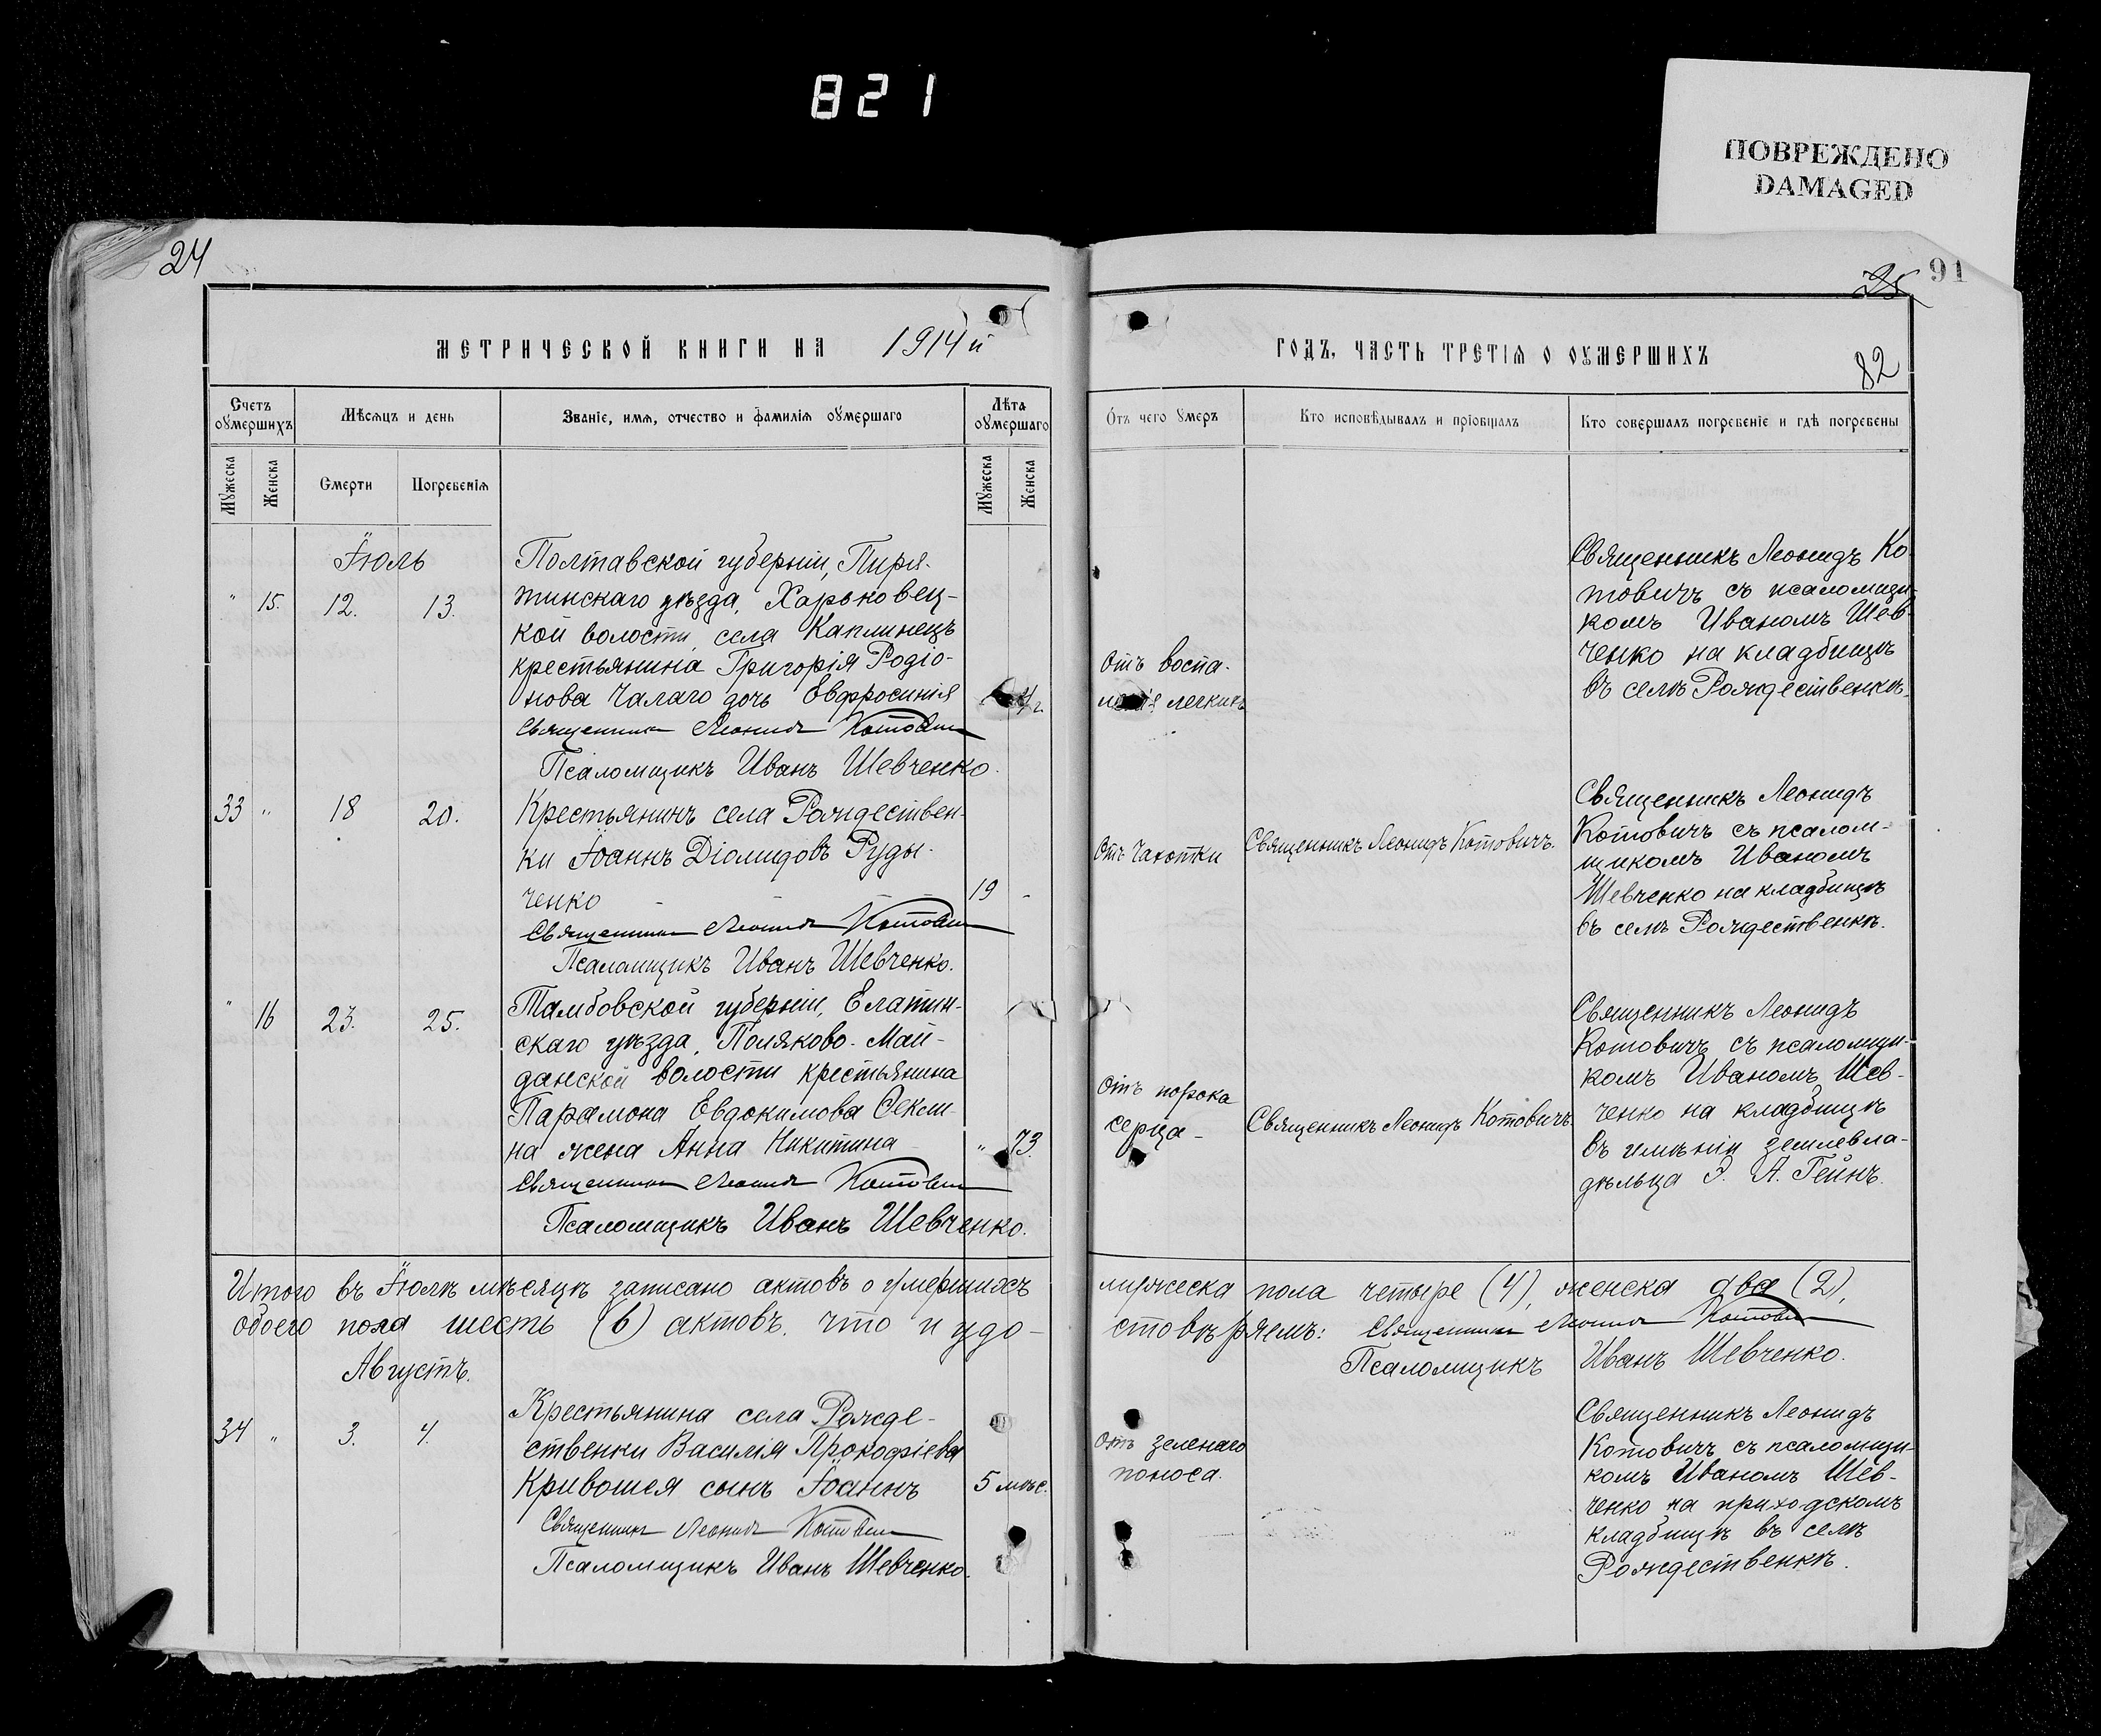 821
ПОВРЕЖДЕНО
DAMAGED
24
91
МЕТРИЧЕСКОЙ КНИГИ НА 1914 й
ГОДЪ, ЧАСТЬ ТРЕТІѦ О ОУМЕРШИХЪ
82
Счетъ оумершихъ
Мѣсѧцъ и день
Званіе, имѧ, отчество и фамиліѧ оумершаго
Лѣта оумершаго
Отъ чего умеръ
Кто исповѣдывалъ и пріобщалъ
Кто совершалъ погребеніе и гдѣ погребены
Мужеска
Женска
Смерти
Погребеніѧ
Мужеска
Женска
Іюль
" 15. 12. 13.
Полтавской губерніи, Пиря-
тинскаго уѣзда, Харьковец-
кой волости, села Каплинецъ
крестьянина Григорія Родіо-
нова Чалаго дочь Евфросинія
Священникъ Леонидъ Котович
Псаломщикъ Иванъ Шевченко.
Отъ воспа-
ленія легкихъ
Священникъ Леонидъ Ко-
товичъ съ псаломщи-
комъ Иваномъ Шев-
ченко на кладбищѣ
въ селѣ Рождественкѣ.
33 " 18 20.
Крестьянинъ села Рождествен-
ки Іоаннъ Діомидовъ Руды-
ченко
19 -
Священникъ Леонидъ Котович
Псаломщикъ Иванъ Шевченко.
Отъ чахотки
Священникъ Леонидъ Котовичъ.
Священникъ Леонидъ
Котовичъ съ псалом-
щикомъ Иваномъ
Шевченко на кладбищѣ
въ селѣ Рождественкѣ.
" 16 23. 25.
Тамбовской губерніи, Елатин-
скаго уѣзда, Поляково-Май-
данской волости крестьянина
Парамона Евдокимова
на жена Анна Никитина
" 73.
Священникъ Леонидъ Котович
Псаломщикъ Иванъ Шевченко.
Отъ порока
серца -
Священникъ Леонидъ Котовичъ.
Священникъ Леонидъ
Котовичъ съ псаломщи-
комъ Иваномъ Шев-
ченко на кладбищѣ
въ имѣніи землевла-
дѣльца Э. А. Гейнъ.
Итого въ Іюлѣ мѣсяцѣ записано актовъ о умершихъ мужеска пола четыре (4), женска два (2),
обоего пола шесть (6) актовъ, что и удо-
стовѣряемъ: Священникъ Леонидъ Котович
Псаломщикъ Иванъ Шевченко.
Августъ.
34 " 3. 4.
Крестьянина села Рожде-
ственки Василія Прокофіева
Кривошея сынъ Іоаннъ
5 мѣс.
Священникъ Леонидъ Котович
Псаломщикъ Иванъ Шевченко.
Отъ зеленаго
поноса.
Священникъ Леонидъ
Котовичъ съ псаломщи-
комъ Иваномъ Шев-
ченко на приходскомъ
кладбищѣ въ селѣ
Рождественкѣ.